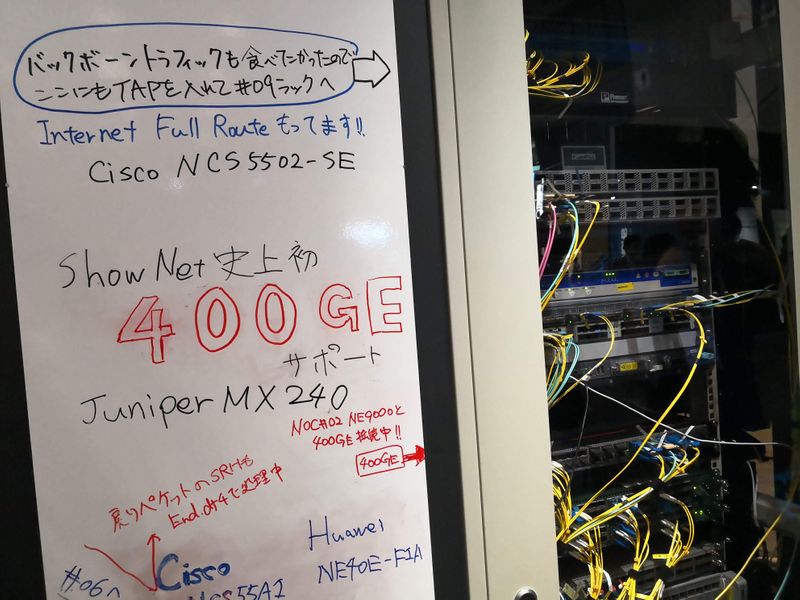 バックボーントラフィックも食べてたかったので
ここにもTAPを入れて#09ラックへ
Internet Full Route もってます!!
Cisco NCS5502-SE
ShowNet 史上初
400GE
サポート
Juniper MX240
NOC#02 NE9000と
400GE 接続中!!
400GE
戻りパケットのSRHも
End.dt4で処理中
Huawei
NE40E-F1A
#06へ
Cisco
NCS55A1